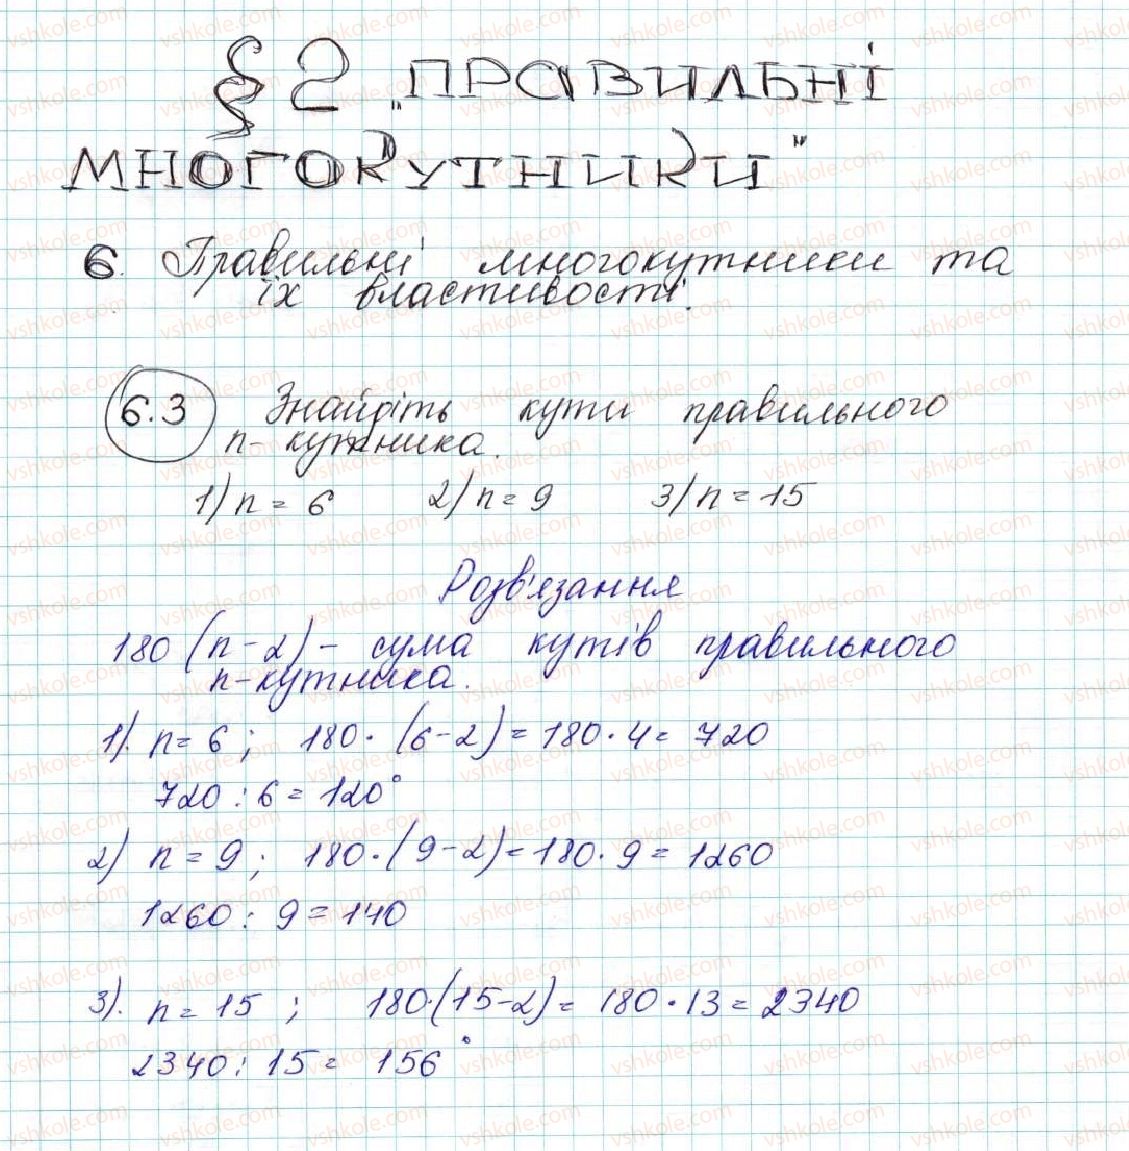 § 2 „ПРАВИЛЬНІ
МНОГОКУТНИКИ"
6. Правильні многокутники та
їх властивості.
6.3 Знайдіть кути правильного
n-кутника.
1) n = 6 2) n = 9 3) n = 15
Розв'язання
180 (n-2) - сума кутів правильного
n-кутника.
1). n = 6 ; 180 · (6-2) = 180 · 4 = 720
720 : 6 = 120°
2) n = 9 ; 180 · (9-2) = 180 · 9 = 1260
1260 : 9 = 140
3). n = 15 ; 180·(15-2) = 180 · 13 = 2340
2340 : 15 = 156°